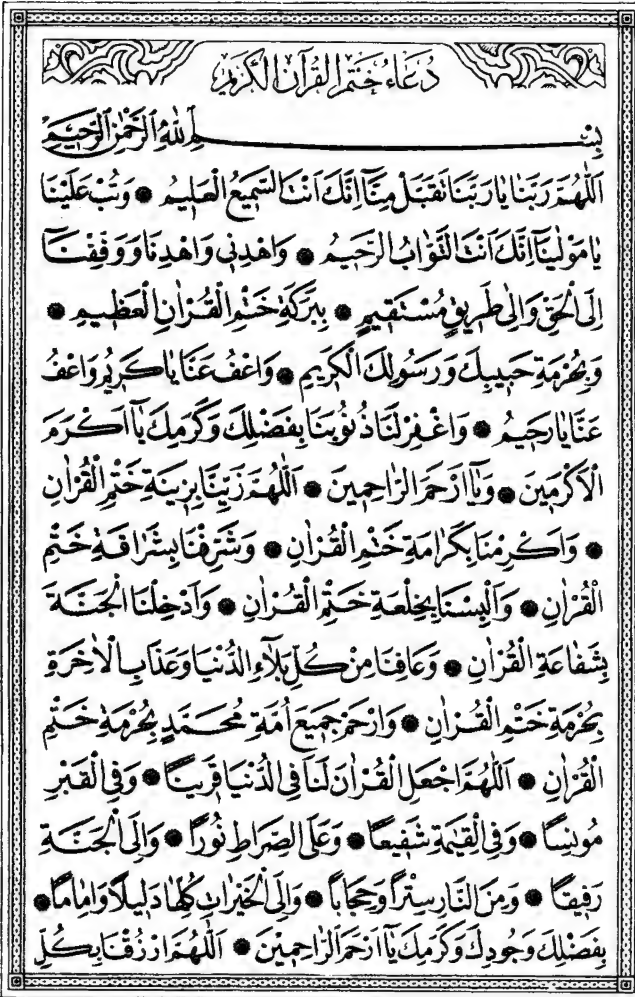 دُعَاءُ خَتْمِ الْقُرْآنِ الْكَرِيمِ
بِسْمِ اللّٰهِ الرَّحْمٰنِ الرَّحِيمِ
اَللّٰهُمَّ رَبَّنَا يَا رَبَّنَا تَقَبَّلْ مِنَّٓا اِنَّكَ اَنْتَ السَّمِيعُ الْعَلِيمُ ۞ وَتُبْ عَلَيْنَا
يَا مَوْلٰينَٓا اِنَّكَ اَنْتَ التَّوَّابُ الرَّحِيمُ ۞ وَاهْدِنِي وَاهْدِنَا وَوَفِّقْنَٓا
اِلَى الْحَقِّ وَاِلٰى طَرِيقٍ مُسْتَقِيمٍ ۞ بِبَرَكَةِ خَتْمِ الْقُرْاٰنِ الْعَظِيمِ ۞
وَبِحُرْمَةِ حَبِيبِكَ وَرَسُولِكَ الْكَرِيمِ ۞ وَاعْفُ عَنَّا يَا كَرِيمُ وَاعْفُ
عَنَّا يَا رَحِيمُ ۞ وَاغْفِرْ لَنَا ذُنُوبَنَا بِفَضْلِكَ وَكَرَمِكَ يَٓا اَكْرَمَ
الْاَكْرَمِينَ ۞ وَيَٓا اَرْحَمَ الرَّاحِمِينَ ۞ اَللّٰهُمَّ زَيِّنَّا بِزِينَةِ خَتْمِ الْقُرْاٰنِ
۞ وَاَكْرِمْنَا بِكَرَامَةِ خَتْمِ الْقُرْاٰنِ ۞ وَشَرِّفْنَا بِشَرَافَةِ خَتْمِ
الْقُرْاٰنِ ۞ وَاَلْبِسْنَا بِخِلْعَةِ خَتْمِ الْقُرْاٰنِ ۞ وَاَدْخِلْنَا الْجَنَّةَ
بِشَفَاعَةِ الْقُرْاٰنِ ۞ وَعَافِنَا مِنْ كُلِّ بَلَٓاءِ الدُّنْيَا وَعَذَابِ الْاٰخِرَةِ
بِحُرْمَةِ خَتْمِ الْقُرْاٰنِ ۞ وَارْحَمْ جَمِيعَ اُمَّةِ مُحَمَّدٍ بِحُرْمَةِ خَتْمِ
الْقُرْاٰنِ ۞ اَللّٰهُمَّ اجْعَلِ الْقُرْاٰنَ لَنَا فِي الدُّنْيَا قَرِينًا ۞ وَفِي الْقَبْرِ
مُونِسًا ۞ وَفِي الْقِيٰمَةِ شَفِيعًا ۞ وَعَلَى الصِّرَاطِ نُورًا ۞ وَاِلَى الْجَنَّةِ
رَفِيقًا ۞ وَمِنَ النَّارِ سِتْرًا وَحِجَابًا ۞ وَاِلَى الْخَيْرَاتِ كُلِّهَا دَلِيلًا وَاِمَامًا ۞
بِفَضْلِكَ وَجُودِكَ وَكَرَمِكَ يَٓا اَرْحَمَ الرَّاحِمِينَ ۞ اَللّٰهُمَّ ارْزُقْنَا بِكُلِّ